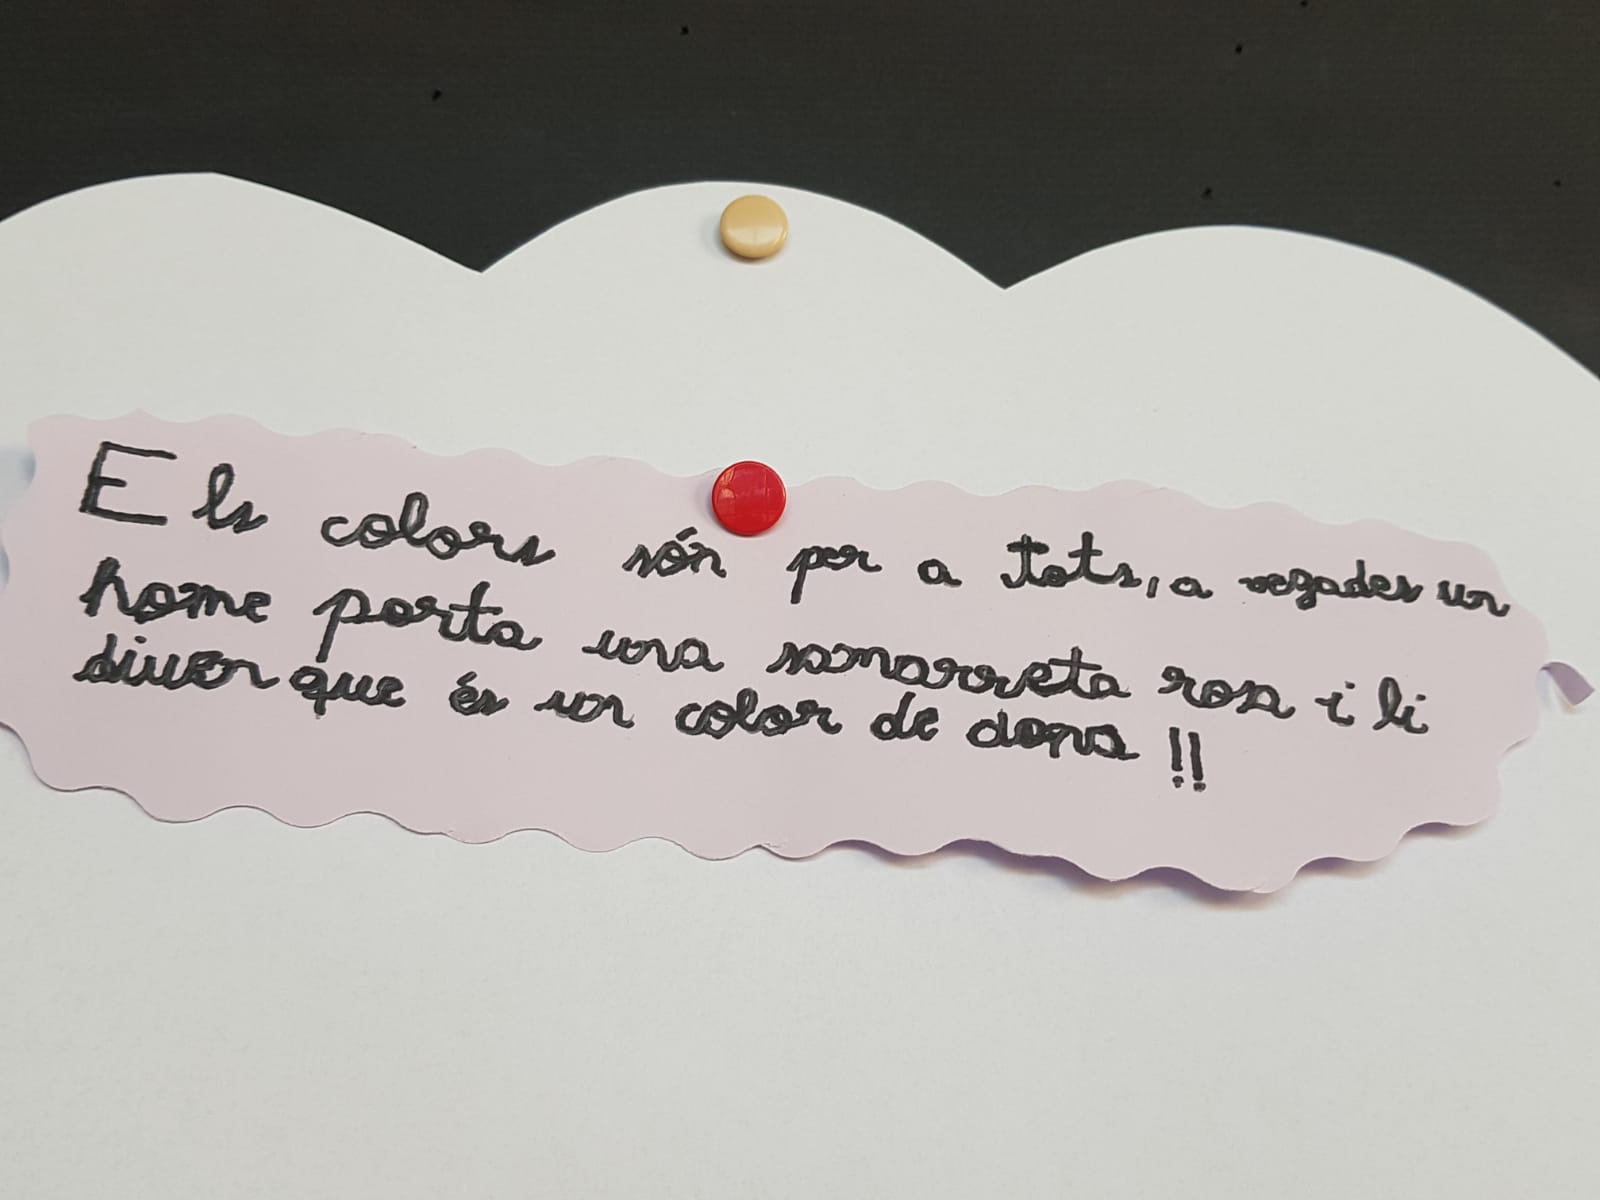 Els colors són per a tots, a vegades un
home porta una samarreta rosa i li
diuen que és un color de dona!!